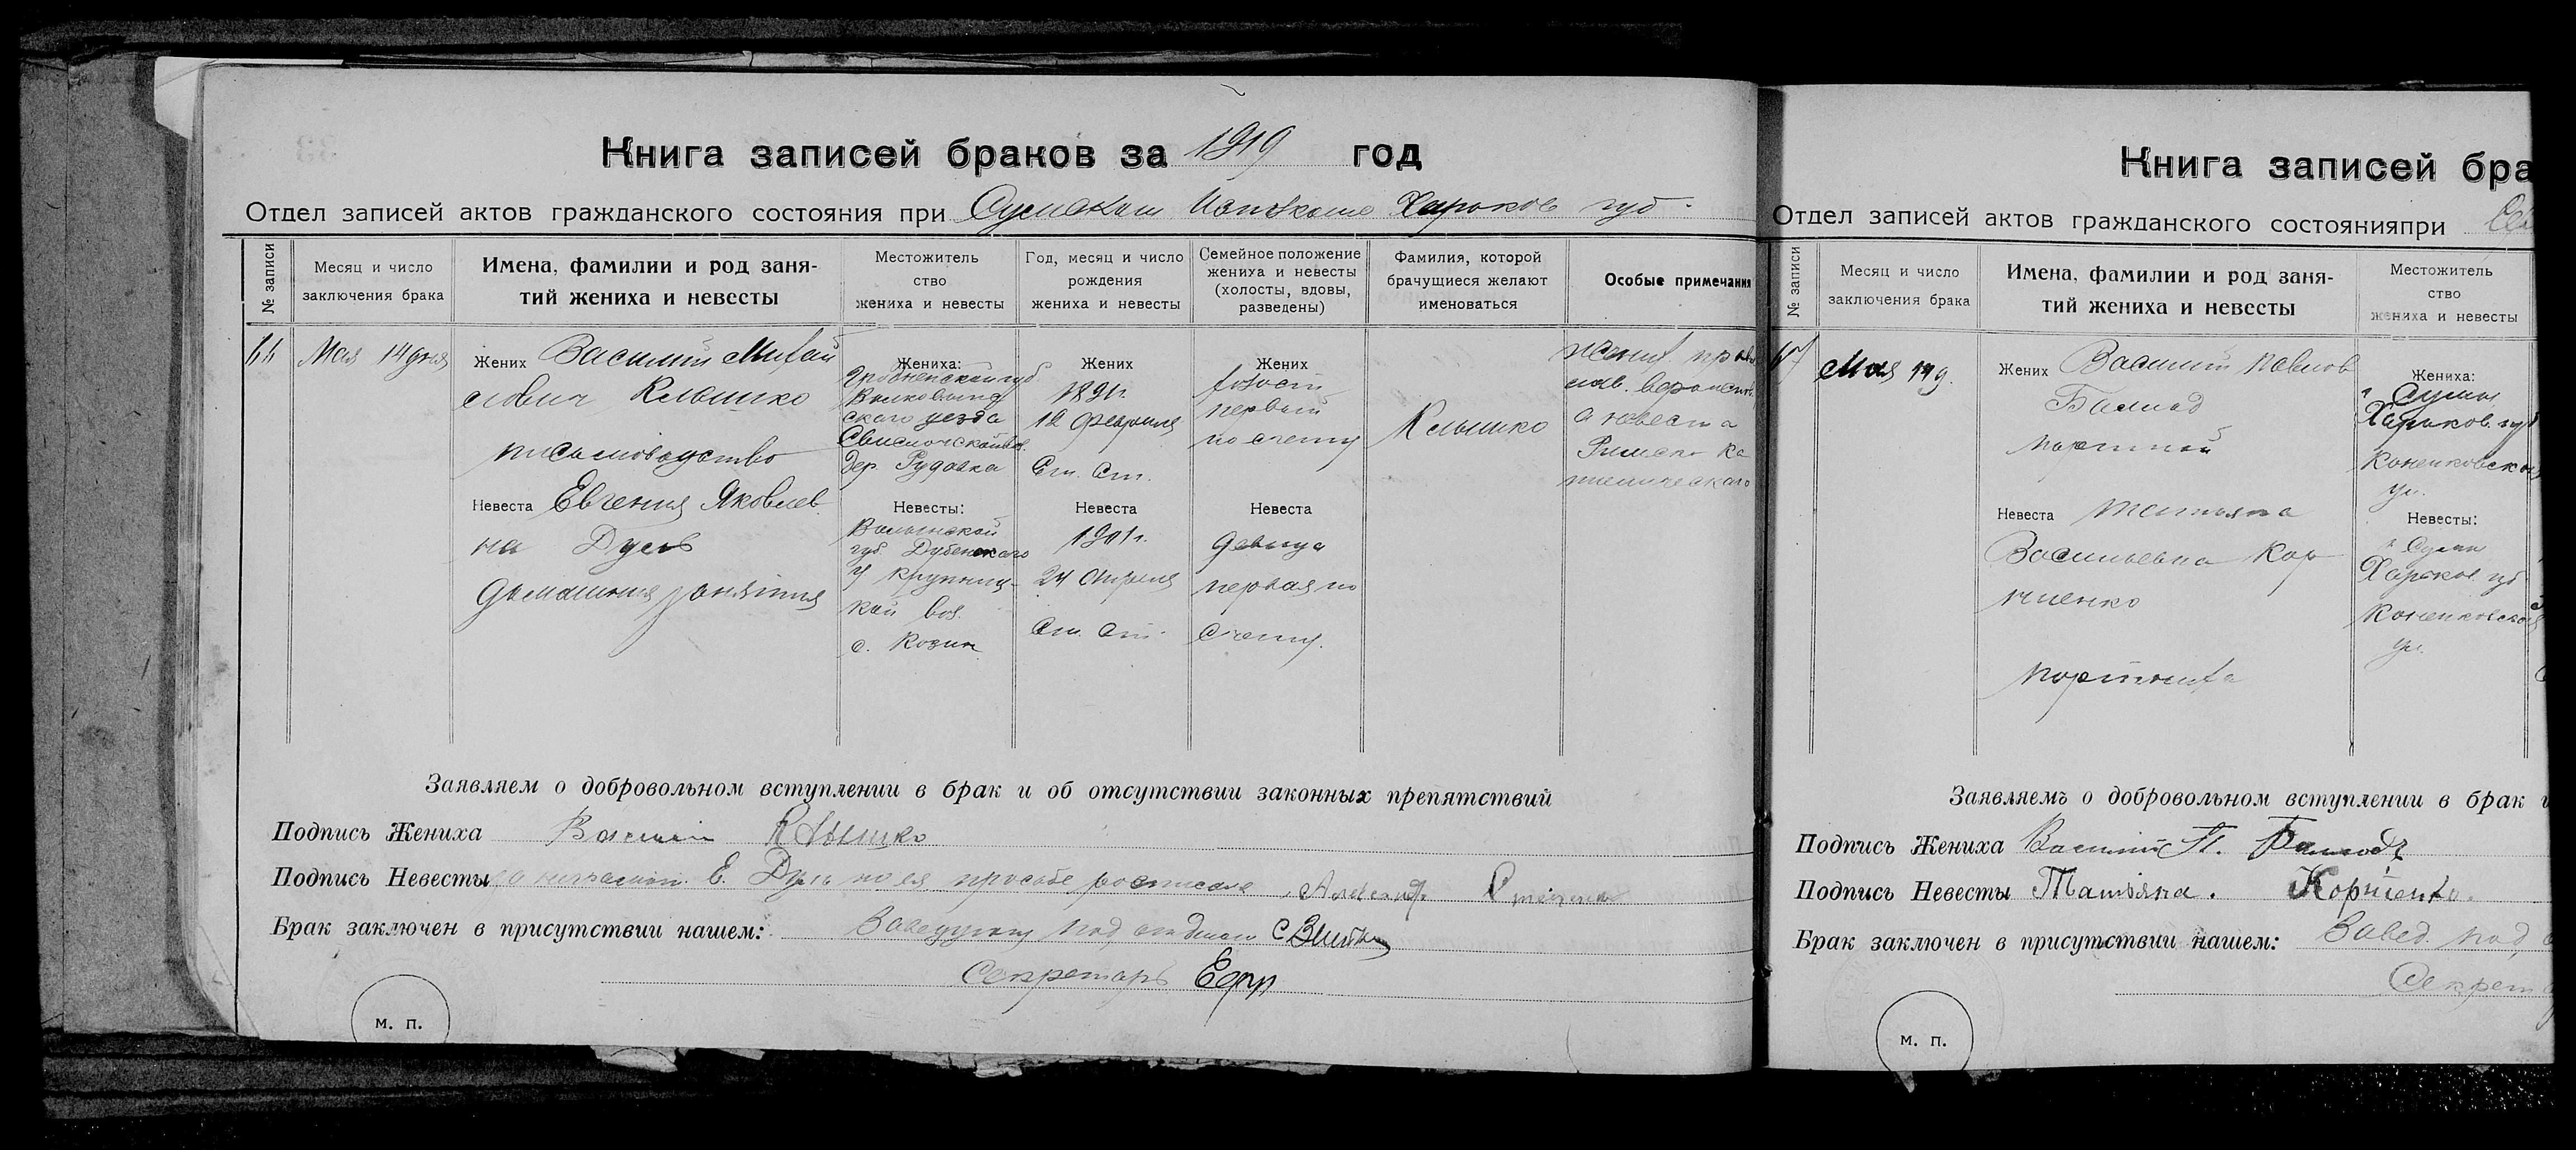 Книга записей браков за 1919 год
Отдел записей актов гражданского состояния при Сумском Исполкоме Харьков губ.
№ записи
Месяц и число
заключения брака
Имена, фамилии и род заня-
тий жениха и невесты
Местожитель
ство
жениха и невесты
Год, месяц и число
рождения
жениха и невесты
Семейное положение
жениха и невесты
(холосты, вдовы,
разведены)
Фамилия, которой
брачущиеся желают
именоваться
Особые примечания
66
Мая 14 дня
Жених Василий Михай
лович Клышко
письмоводство
Невеста Евгения Яковлев
на Дуль
домашния занятия
Жениха:
Гродненской губ.
Волковыс
скаго уезда
Свислочской вол.
дер. Рудавка
Невесты:
Волынской
губ. Дубенскаго
у Крупниц-
кой вол.
с. Козин
Жених
1891г.
12 Февраля
Ст. Ст.
Невеста
1901г.
24 Апреля
Ст. Ст.
Жених
холост
первый
по счету
Невеста
девица
первая по
счету.
Клышко
жених право
слав.
а невеста
Римско Ка
толическаго
Заявляем о добровольном вступлении в брак и об отсутствии законных препятствий
Подпись Жениха Василий Клышко
Подпись Невесты за неграмотн. Е. Дуль по ея просьбе росписался Александр
Брак заключен в присутствии нашем: Заведующий под отделом
Секретарь
м. п.
Книга записей бра
Отдел записей актов гражданского состояния при
№ записи
Месяц и число
заключения брака
Имена, фамилии и род заня-
тий жениха и невесты
Местожитель
ство
жениха и невесты
67
Мая 14д.
Жених Василий Павлов
Баллод
портной
Невеста Татьяна
Васильевна Кор
ниенко
портниха
Жениха:
г Сумы
Харьков. губ
ул.
Невесты:
г. Сумы
Харьков губ
ул.
Заявляемъ о добровольном вступлении в брак и
Подпись Жениха Василий П. Баллодъ
Подпись Невесты Татьяна. Корниенко.
Брак заключен в присутствии нашем: Завед. под
Секрет
м. п.